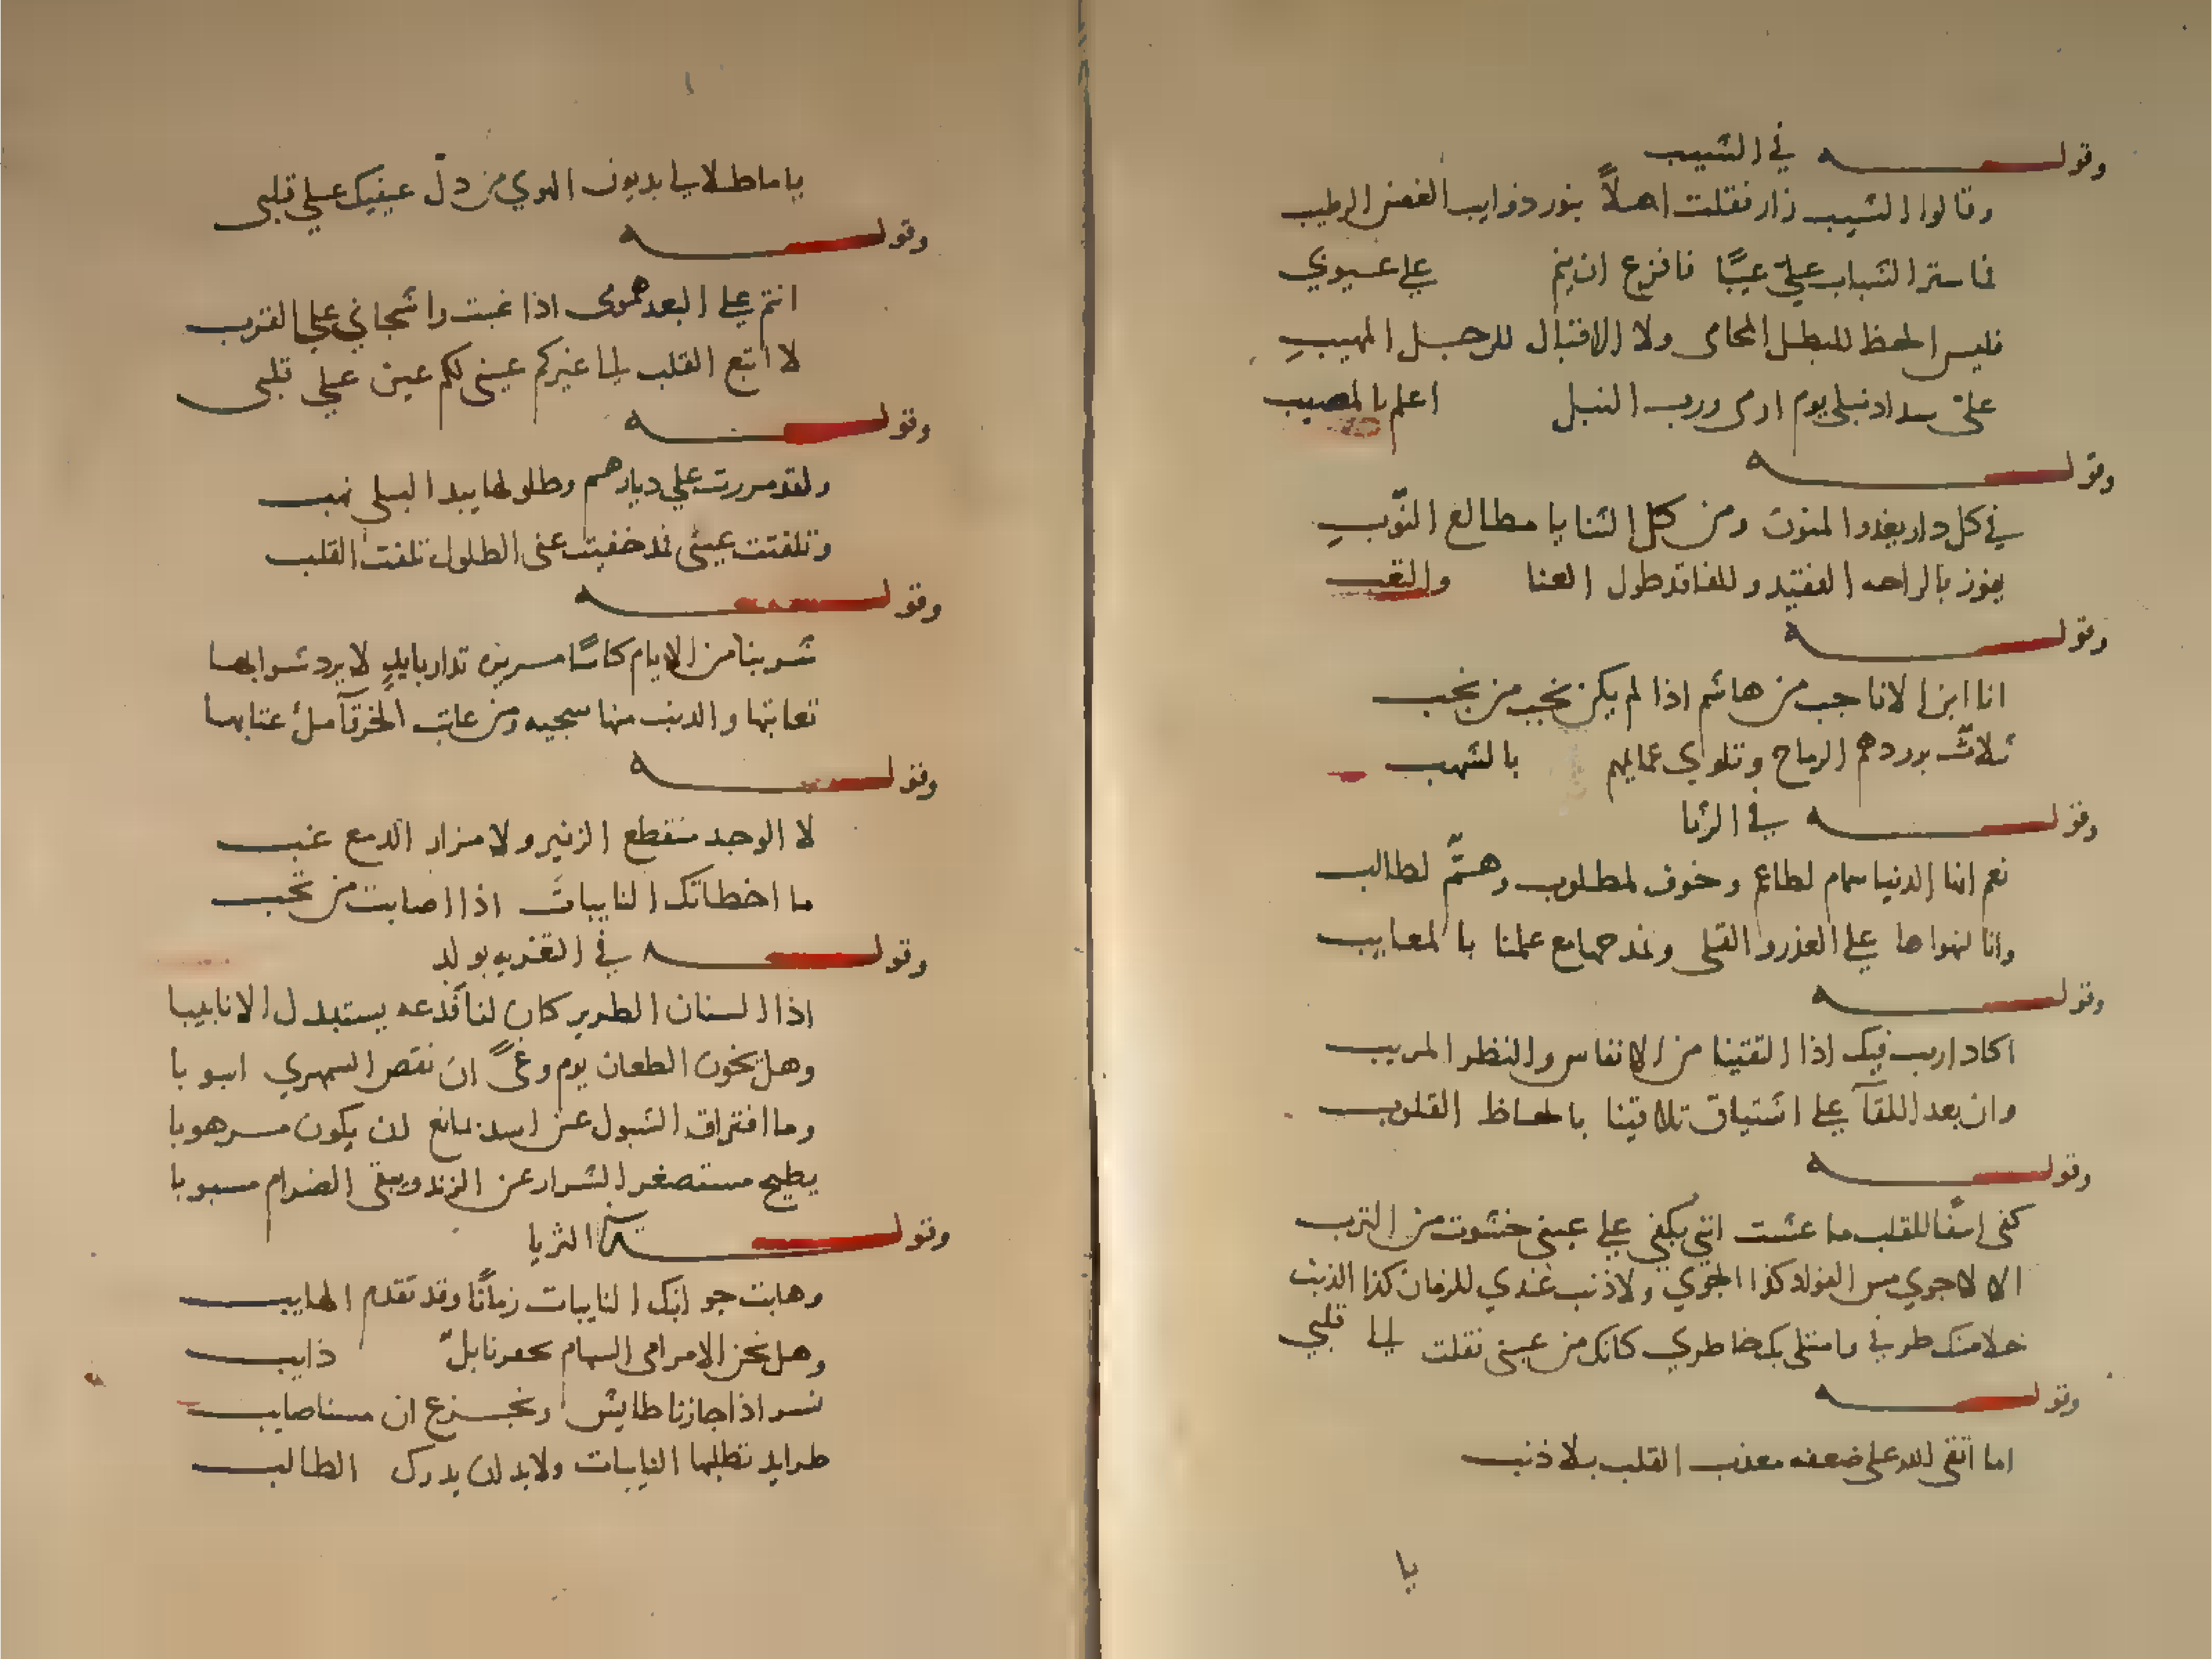 وقولـــه في الشيب
وقالوا الشيب زار فقلت اهلاً بنور ذوايب الغصن الرطيب
فما ستر الشباب عليّ عيبًا فافزع ان ينم على عيوبي
فليس الحظ للبطل المحامي ولا الاقبال للرجل المهيبِ
عليّ سداد نبلي يوم ارمي ورب النبل اعلم بالمصيب
وقولـــه
في كل دار يغدوا المنون ومن كل الثنايا مطالع النّوبِ
يفوز بالراحه الفقيد وللفاقد طول العنا والتعب
وقولـــه
انا ابن الاناجب من هاشم اذا لم يكن نجب من نجب
ثلاث برودهم الرماح وتلوي عمايمهم بالشهب
وقولـــه في الرثا
نعم انها الدنيا سمام لطاعم وخوف لمطلوب وهمٌّ لطالب
وانا لنهواها على الغدر والقلى ونمدحها مع علمنا بالمعايب
وقولـــه
اكاد اريب فيك اذا التقينا من الانفاس والنظر المريب
وان بعد اللقآ على اشتياق تلاقينا بالحاظ القلوب
وقولـــه
كفى اسفًا للقلب ما عشت انني بكفي على عيني حشوت من الترب
الا لا جوي مس الفواد كذا الجوي ولا ذنب عندي للزمان كذا الذنب
خلا منك طرفي وامتلى بك خاطري كانك من عيني نقلت الى قلبي
وقولـــه
اما اتقى الله على ضعفه معذب القلب بلا ذنب
يا
يا ماطلا لي بديون الهوي من دلّ عينيك على قلبي
وقولـــه
انتم على البعد همومى اذا غبت واشجاني على القرب
لا اتبع القلب الى غيركم عيني لكم عين على قلبي
وقولـــه
ولقد مررت على ديارهم وطلولها بيد البلى نهب
وتلفتت عيني فمذ خفيت عني الطلول تلفت القلب
وقولـــه
شربنا من الايام كاسًا مريره تدار بايدٍ لا يرد شرابها
نعاتبها والذنب منها سجيه ومن عاتب الخرقآ ملّ عتابها
وقولـــه
لا الوجد منقطع الزفير ولا مزار الدمع غب
ما اخطاتك النايباتَ اذا اصابت من تحب
وقولـــه في التعزيه بولد
اذا السنان الطرير كان لنا فدعه يستبدل الانابيبا
وهل يخون الطعان يوم وغىً ان نقص السمهري انبوبا
وما افتراق الشبول عن اسد بمانع لان يكون مرهوبا
يطيح مستصغر الشرار عن الزند ويبقى الضرام مشبوبا
وقولـــه الرثا
وهابت جوانبك النايبات زمانًا وقد تقدم الهايب
وهل نحن الا مرامى السهام يحفزنا بلّ ذايب
نسر اذا جازنا طايش ونجزع ان مسنا صايب
طرايد تطلبها النايبات ولا بد لان يدرك الطالب